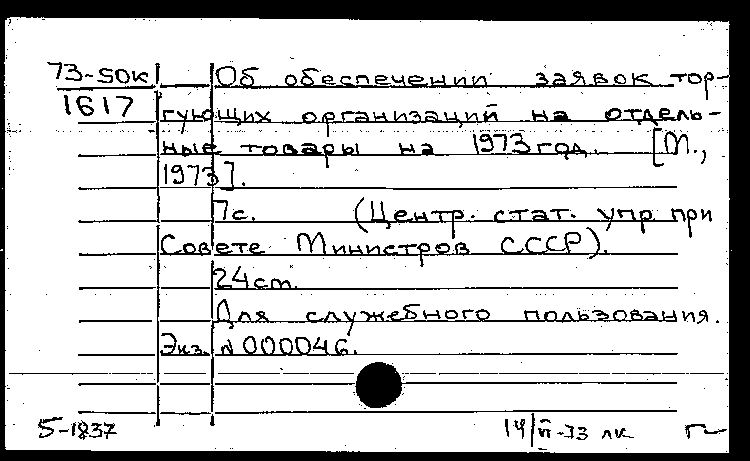 73-50к Об обеспечении заявок тор-
1617 гующих организаций на отдель-
ные товары на 1973 год. [М.,
1973].
7с. (Центр. стат. упр при
Совете Министров СССР).
24 cm.
Для служебного пользования.
Экз. N 000046.
5-1837 14/VI-73 лк